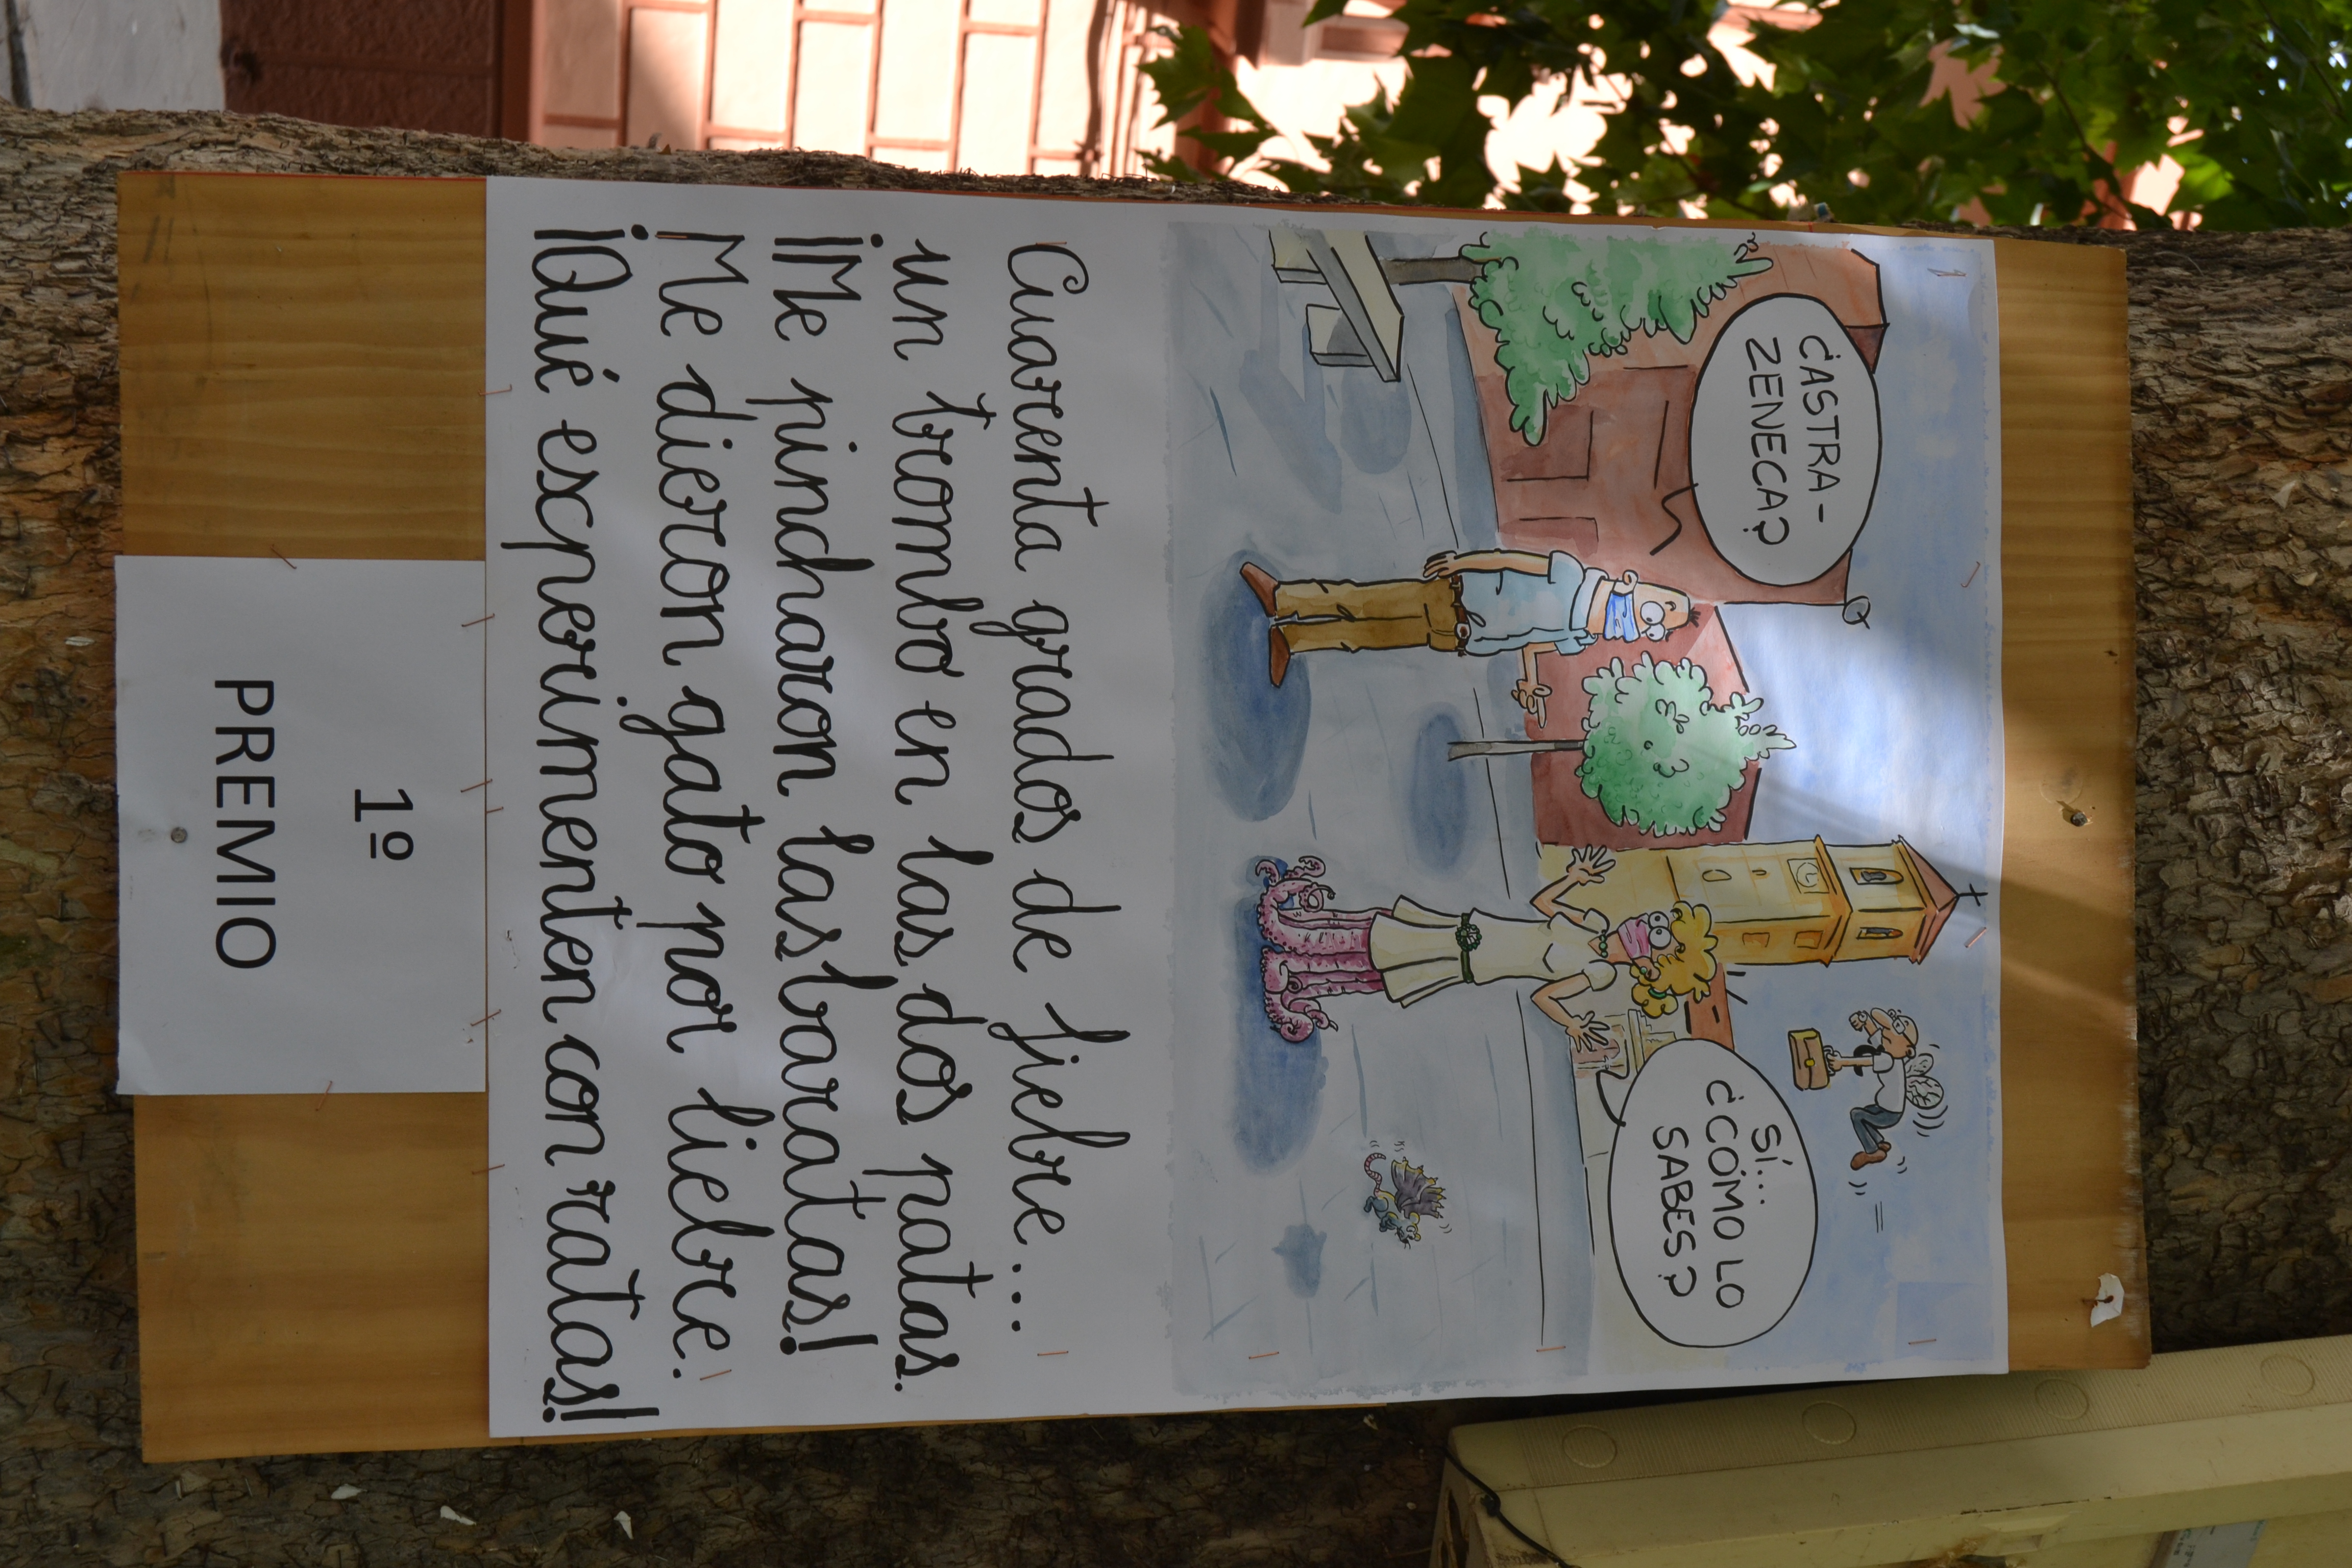 ¿CASTRA-
ZENECA?
SÍ...
¿CÓMO LO
SABES?
Cuarenta grados de fiebre...
un trombo en las dos patas.
¡Me pincharon las baratas!
Me dieron gato por liebre.
¡Qué experimenten con ratas!
1º
PREMIO